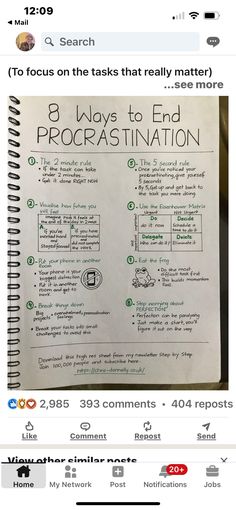 12:09
Mail
Search
(To focus on the tasks that really matter)
...see more
8 Ways to End
PROCRASTINATION
① - The 2 minute rule
• If the task can take
under 2 minutes...
• Get it done RIGHT NOW
② - Visualise how future you
will feel
Imagine how it feels at
the end of the day in 2 ways
A
If you've
worked hard
and
stopped procrast.
B
If you have
procrastinated
and
did not complete
the work.
③ - Put your phone in another
room
• Your phone is your
biggest distraction
• Put it in another
room and get to
work.
④ - Break things down
Big projects = overwhelmed, procrastination
feelings
• Break your tasks into small
challenges to avoid this
⑤ - The 5 second rule
• Once you've noticed your
procrastinating, give yourself
5 seconds
• By 5, get up and get back to
the task you were doing
⑥ - Use the Eisenhower Matrix
Urgent
Not Urgent
Do
do it now
Decide
Schedule a
time to do it
Delegate
Who can do it?
Delete
Eliminate it
⑦ - Eat the frog
• Do the most
difficult task first
• This builds momentum
⑧ - Stop worrying about
PERFECTION
• Perfection can be paralysing
• Just make a start, you'll
figure it out on the way
Download this high res sheet from my newsletter Step by Step.
Join 100,000 people and subscribe here
https://chris-donnelly.co.uk/
2,985
393 comments • 404 reposts
Like
Comment
Repost
Send
View other similar posts
20+
Home
My Network
Post
Notifications
Jobs